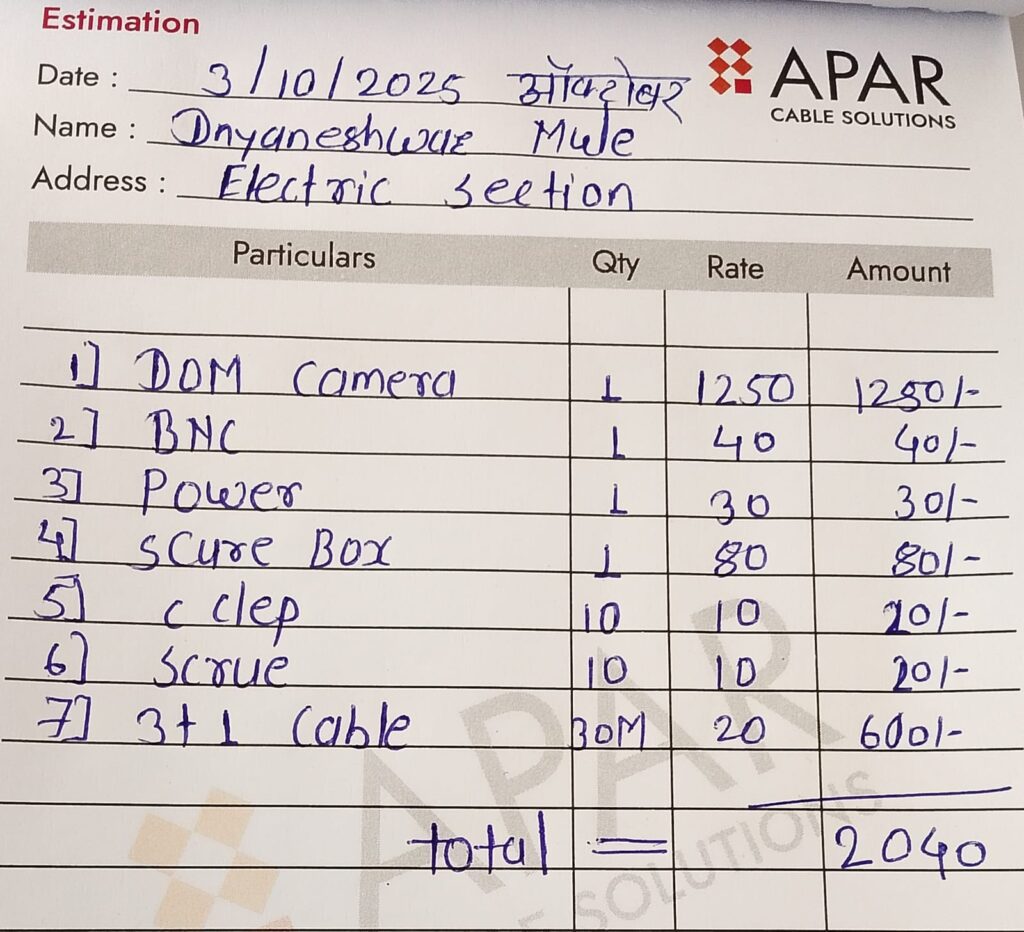 Estimation
APAR
CABLE SOLUTIONS
Date : 3/10/2025 ऑक्टोबर
Name : Dnyaneshwar Mule
Address : Electric Section
Particulars Qty Rate Amount
1] DOM Camera 1 1250 1250/-
2] BNC 1 40 40/-
3] Power 1 30 30/-
4] SCure Box 1 80 80/-
5] C clep 10 10 20/-
6] Scrue 10 10 20/-
7] 3+1 Cable 30M 20 600/-
total = 2040
APAR
E SOLUTIONS